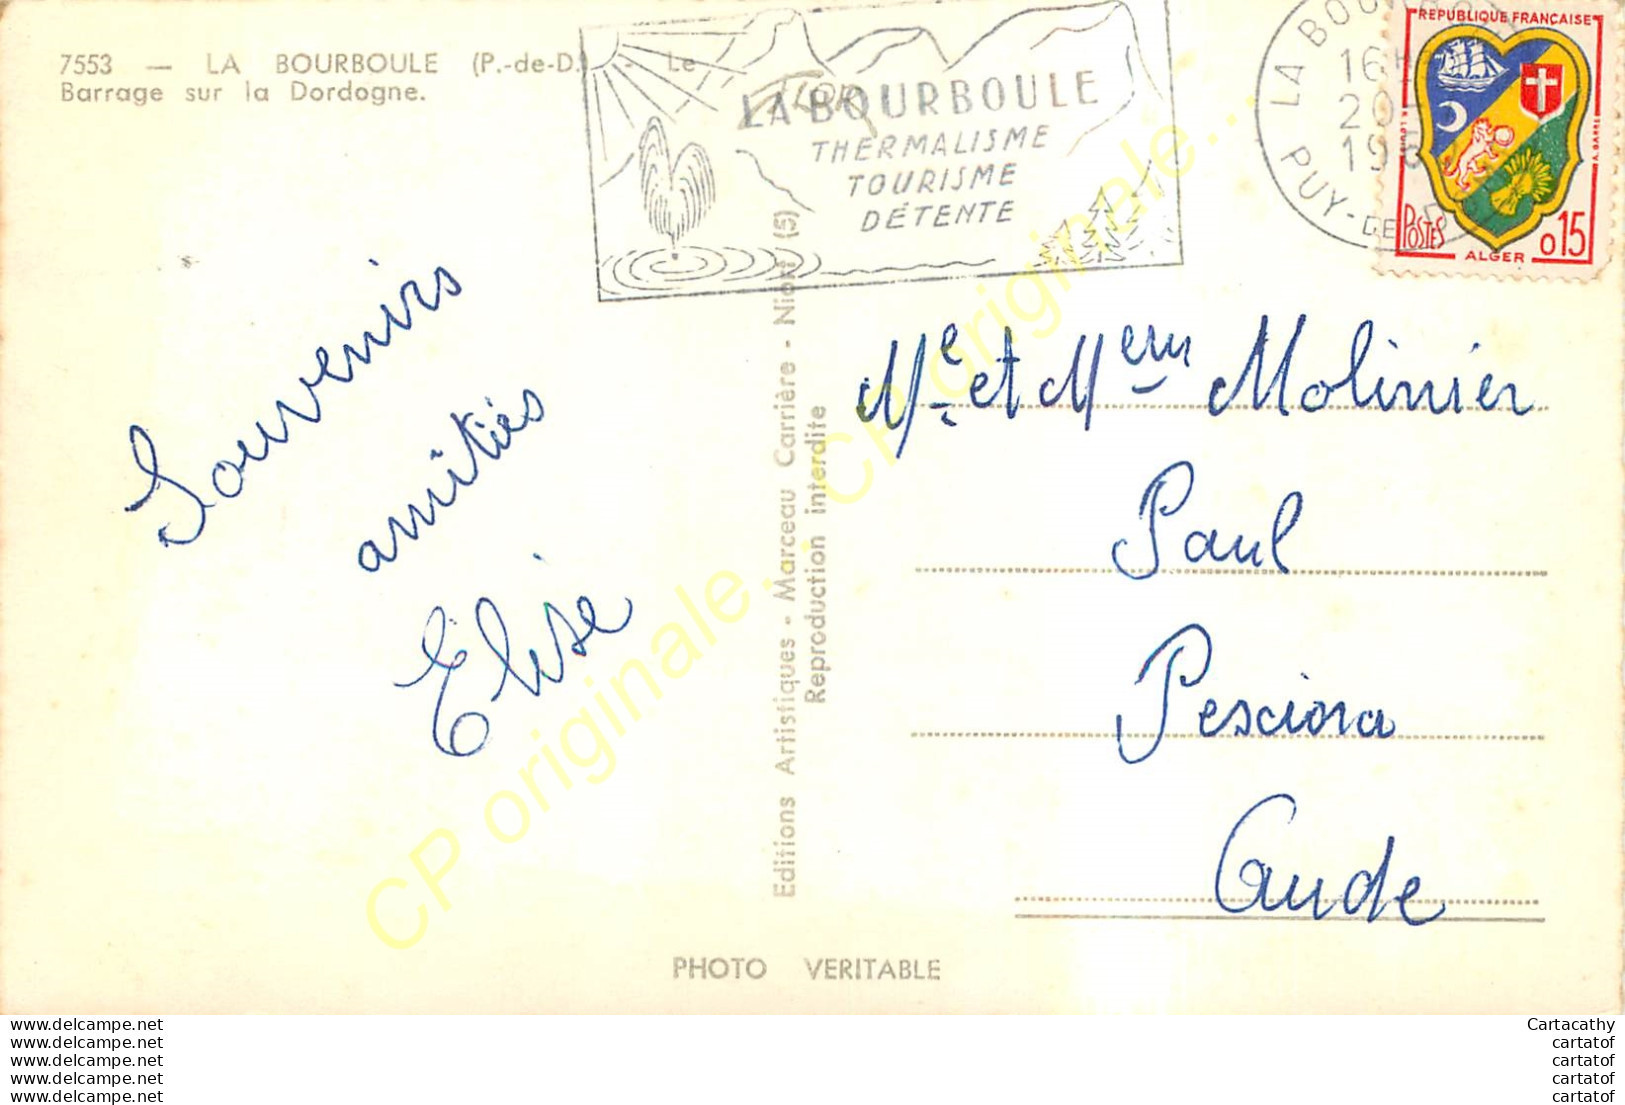 7553 — LA BOURBOULE (P.-de-D.) - Le
Barrage sur la Dordogne.
LA BOURBOULE
THERMALISME
TOURISME
DÉTENTE
16 H
20 -
196
PUY-DE-D
REPUBLIQUE FRANÇAISE
POSTES
ALGER
0 15
Souvenirs
amitiés
Elise
Editions Artistiques - Marceau Carrière - Niort (5)
Reproduction interdite
Me et Mem Molinier
Paul
Pexiora
Aude
PHOTO VERITABLE
CP originale... CP originale...
www.delcampe.net
www.delcampe.net
www.delcampe.net
www.delcampe.net
www.delcampe.net
Cartacathy
cartatof
cartatof
cartatof
cartatof